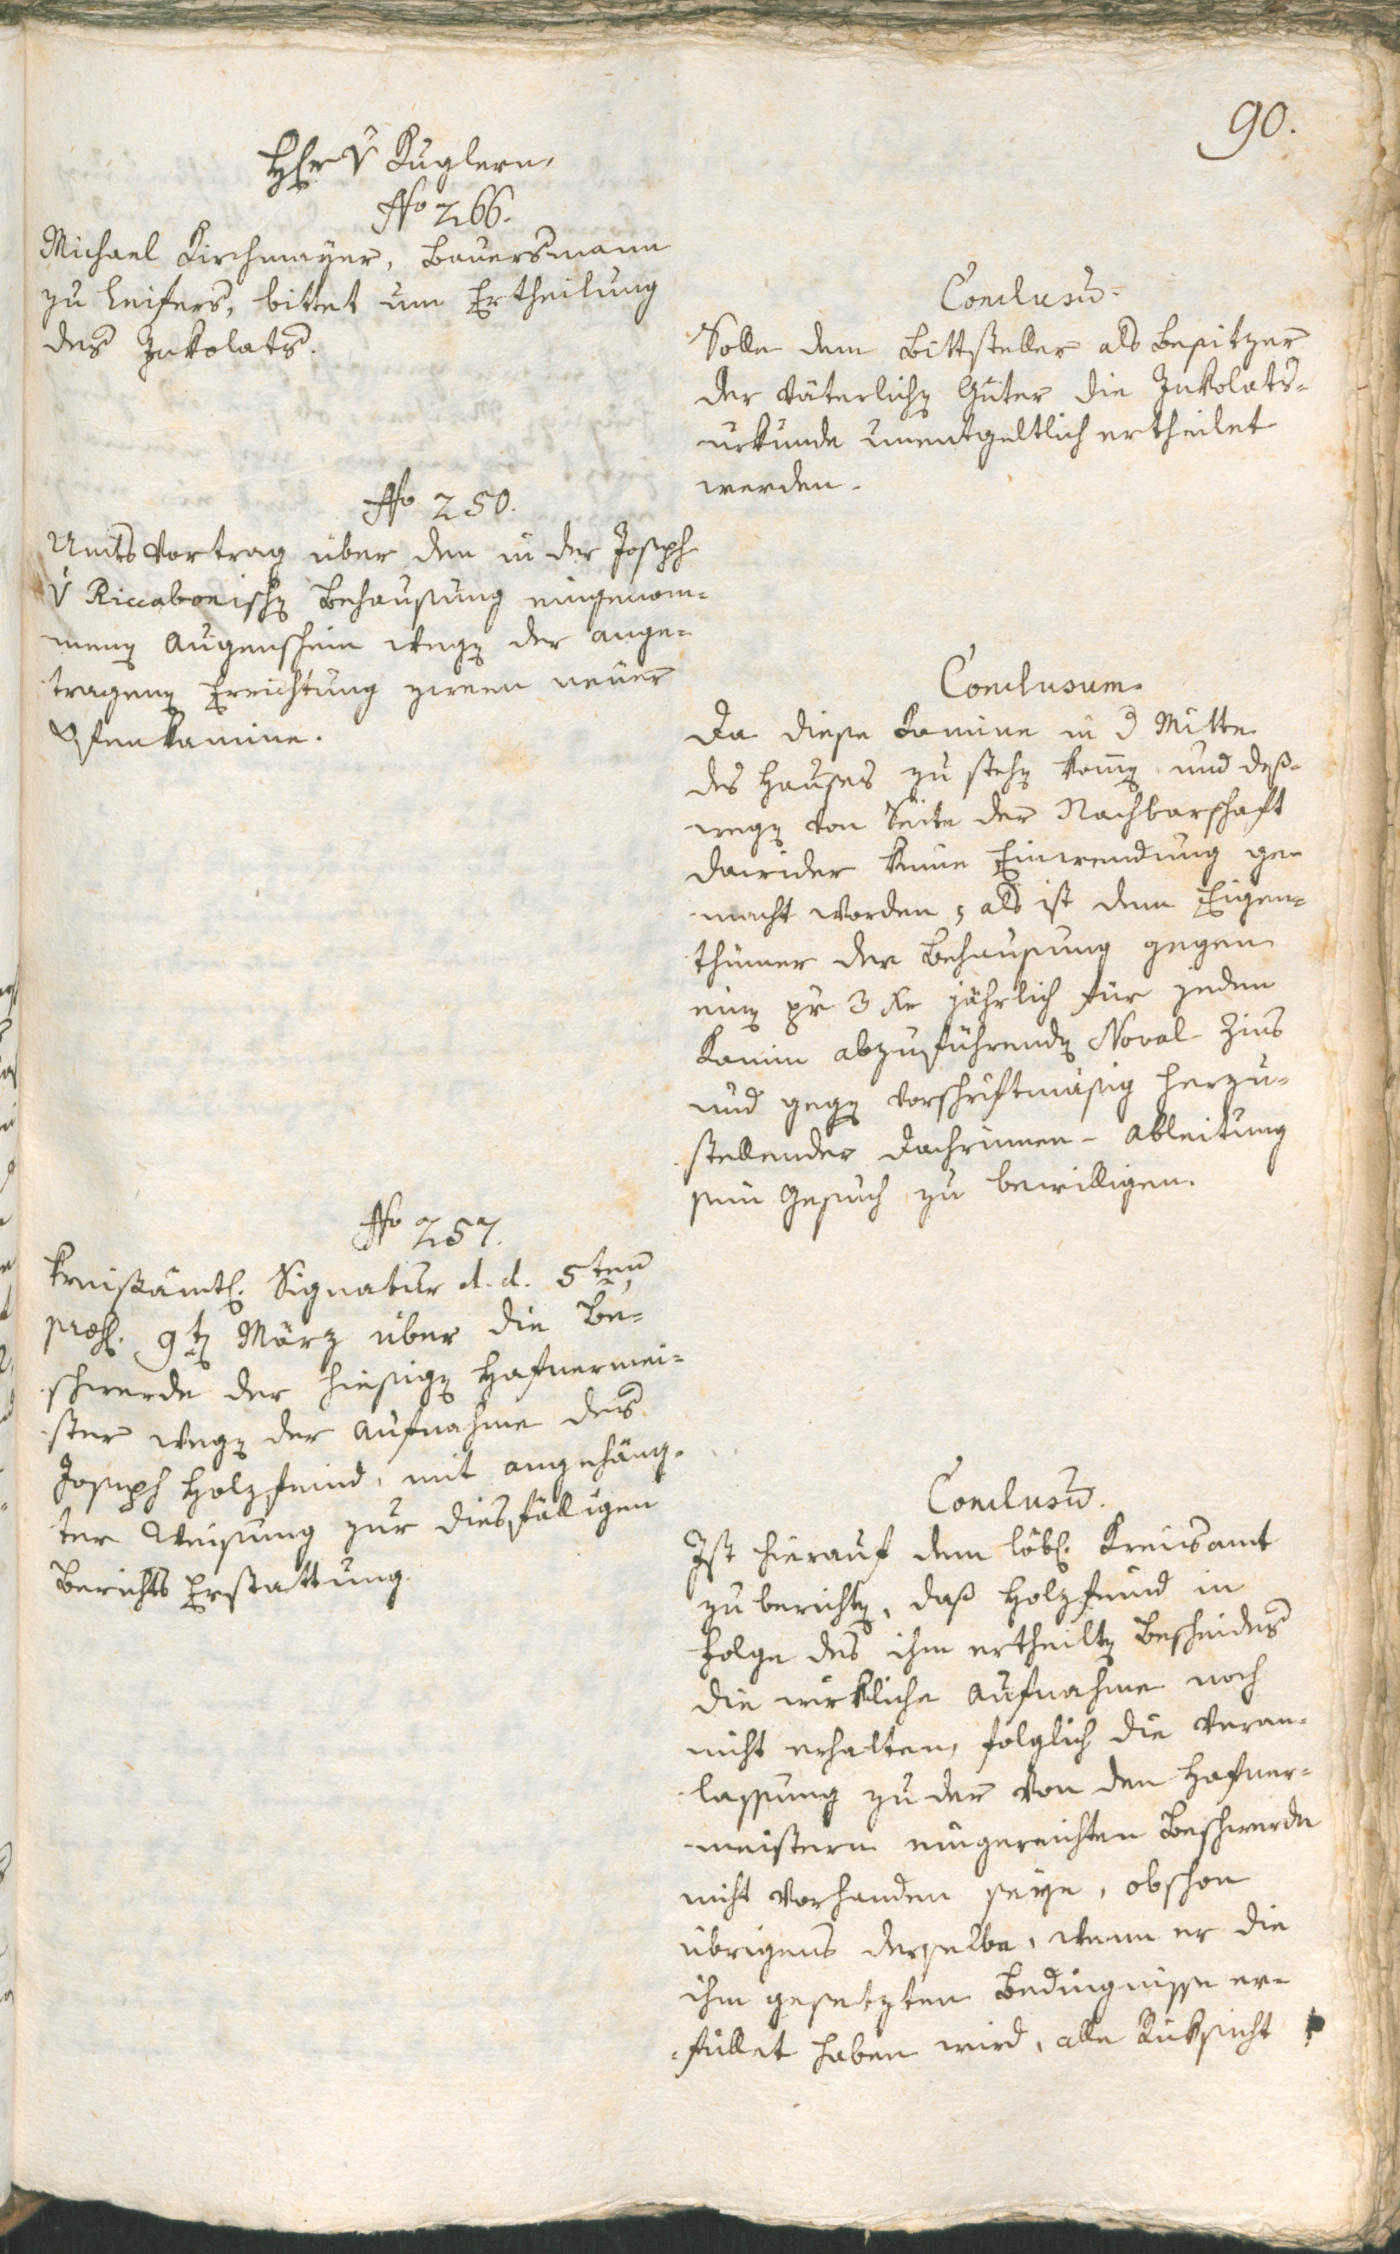 90.
Hr. v Kuglern.
No 266.
Michael Kirchmayer, Bauersmann
zu Leifers, bittet um Ertheilung
des Inkolats.
Conclusū.
Solle dem Bittsteller als Besitzer
der väterlichen Güter die Inkolats-
urkunde unentgeltlich ertheilet
werden.
No 250.
Amts Vortrag über den in der Joseph
v Riccabonischen Behausung eingenom-
menen Augenschein wegen der ange-
tragenen Errichtung zween neuer
Ofenkamine.
Conclusum.
Da diese Kamine in d Mitte
des Hauses zu stehen komen und deß-
wegen von Seite der Nachbarschaft
dawider keine Einwendung ge-
macht worden, als ist dem Eigen-
thümer der Behausung gegen
einen pr 3 Kr jährlich für jeden
Kamin abzuführenden Noval-Zins
und gegen vorschriftmäsig herzu-
stellender Dachrinnen-Ableitung
sein Gesuch zu bewilligen.
No 257.
Kreisämtl. Signatur d. d. 5ten,
præs. 9ten März über die Be-
schwerde der hiesigen Hafnermei-
ster wegen der Aufnahme des
Joseph Holzfeind, mit angehäng-
ter Weisung zur diesfälligen
Berichts Erstattung.
Conclusū.
Ist hierauf dem löbl. Kreisamt
zu berichten, daß Holzfeind in
Folge des ihm ertheilten Bescheides
die wirkliche Aufnahme noch
nicht erhalten, folglich die Veran-
lassung zu der von den Hafner-
meistern eingereichten Beschwerde
nicht vorhanden seye, obschon
übrigens derselbe, wenn er die
ihm gesetzten Bedingnisse er-
füllet haben wird, alle Rüksicht